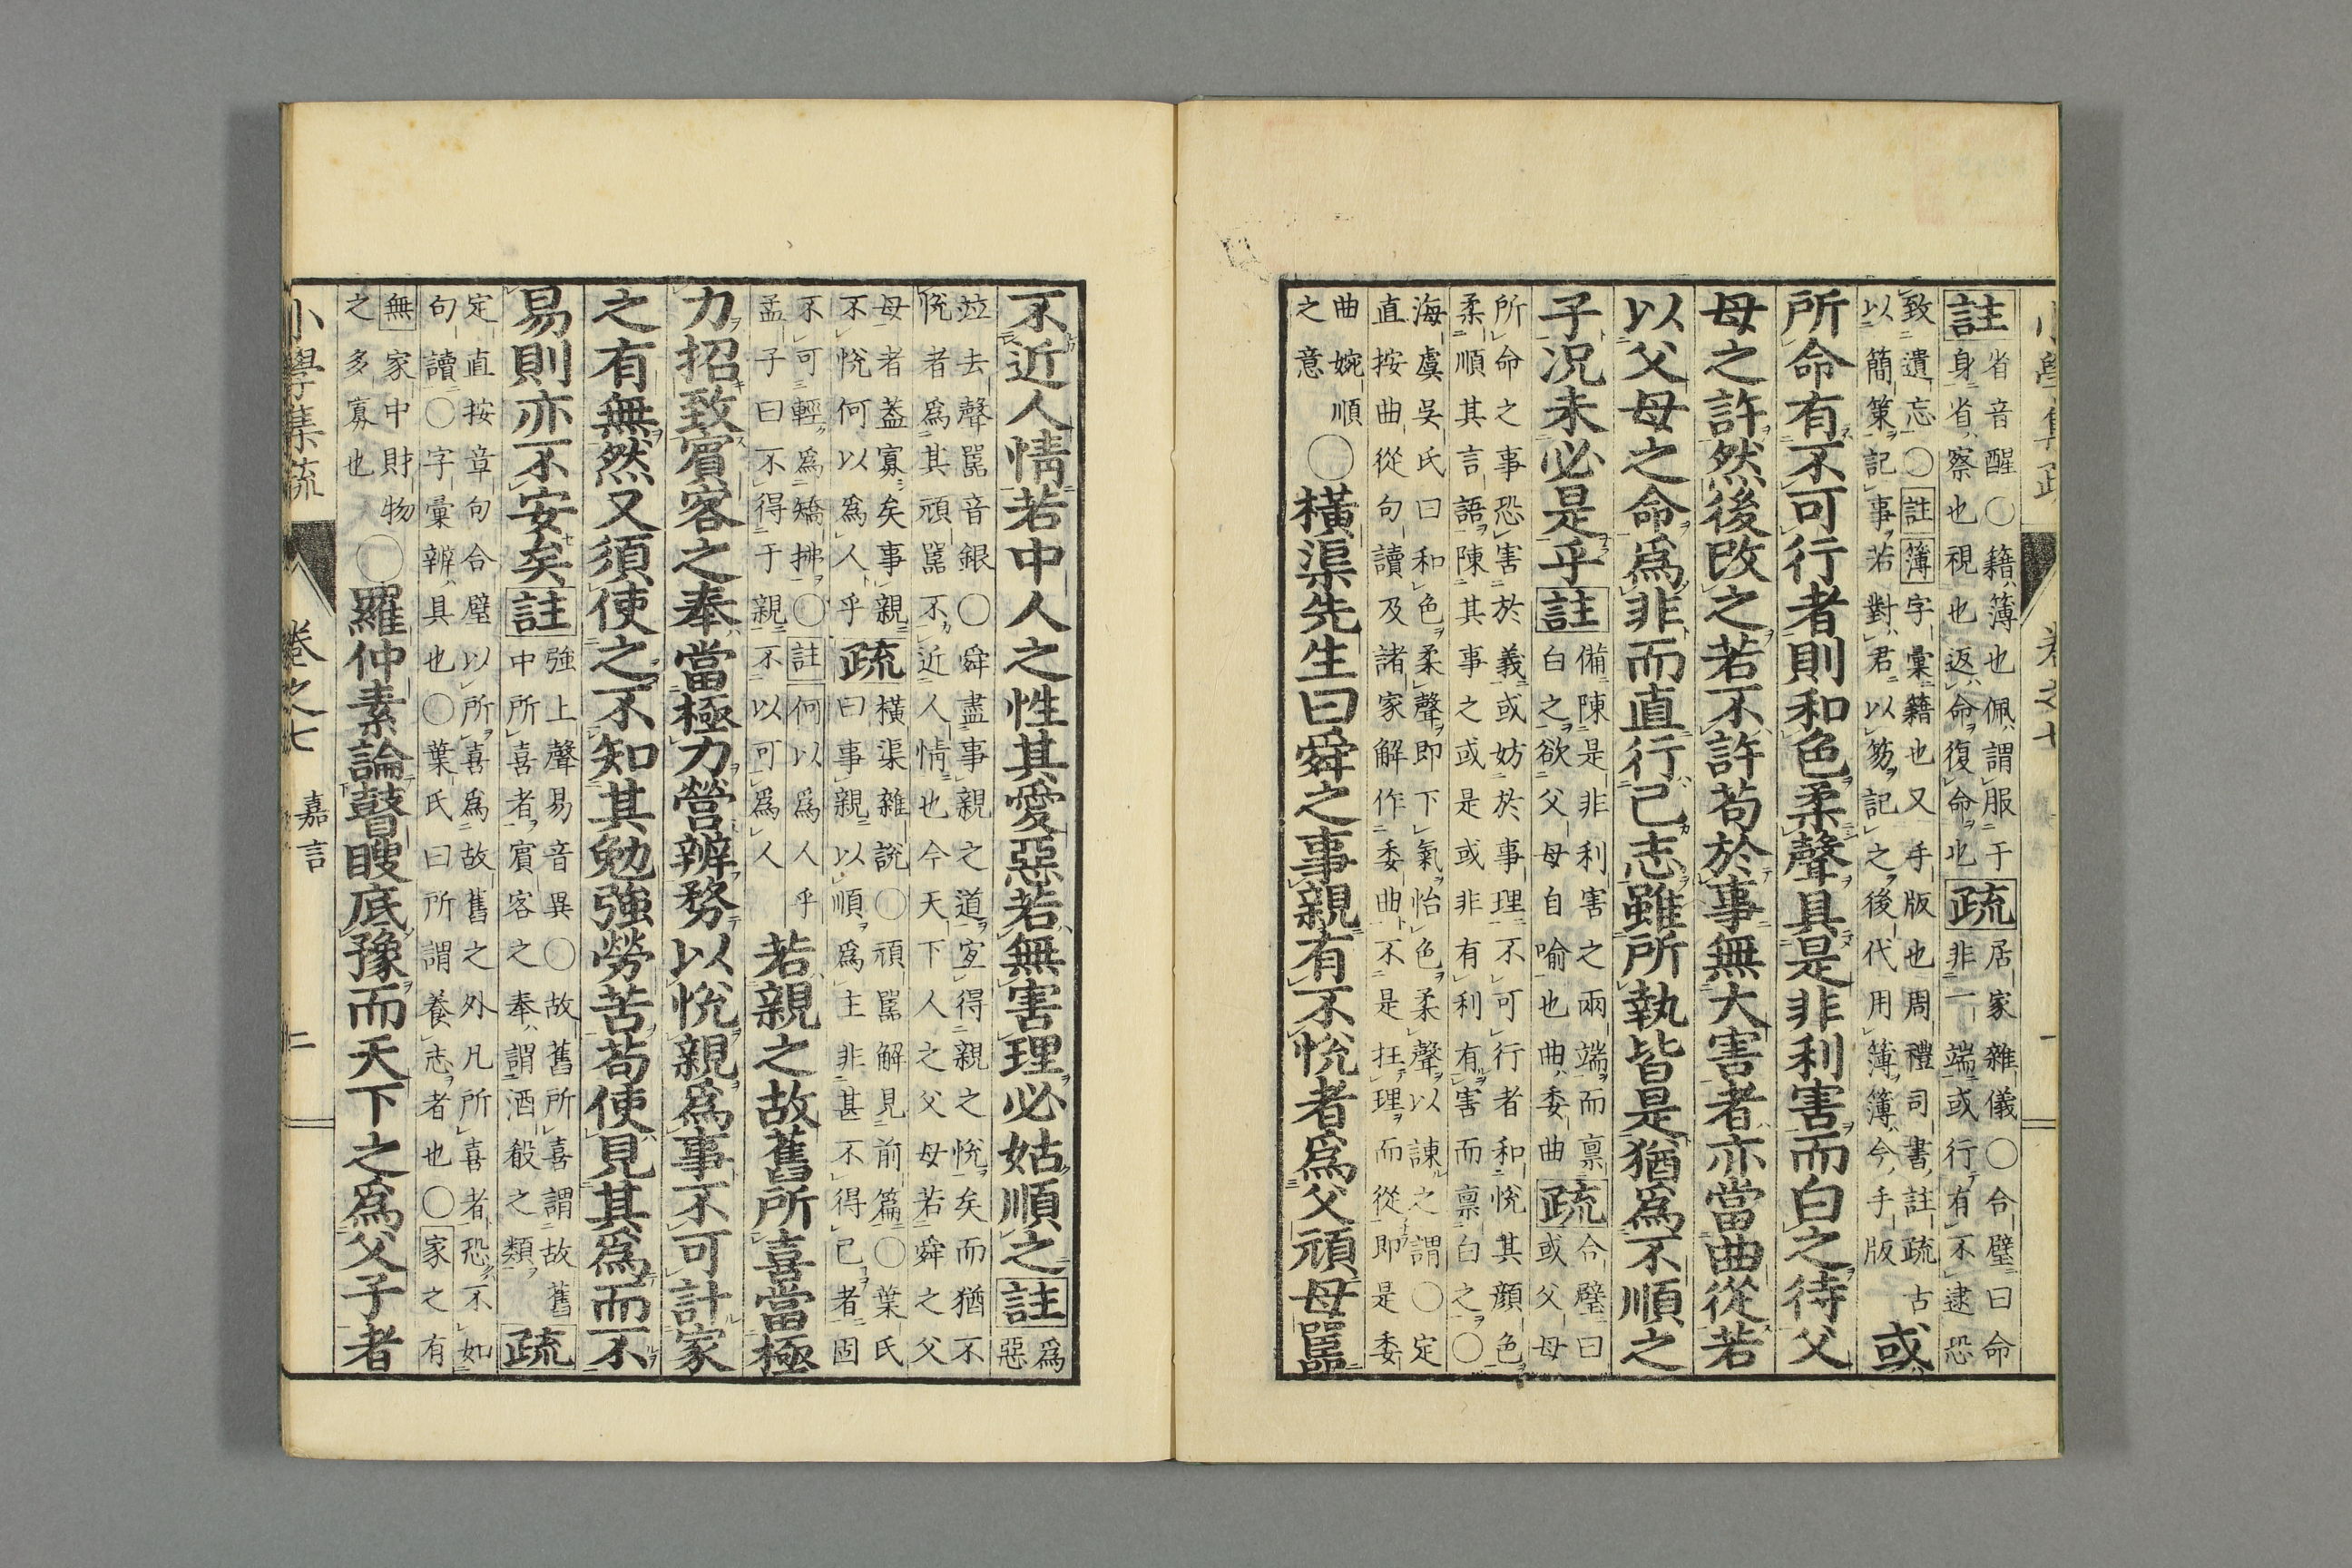 註省音醒〇籍簿也佩謂服于
身省察也視也返命復命也疏居家雜儀〇合璧曰命
非一端或行有不逮恐
致遺忘〇註簿字彙籍也又手版也周禮司書註疏古
以簡策記事若對君以笏記之後代用簿簿今手版或
所命有不可行者則和色柔聲具是非利害而白之待父
母之許然後改之若不許苟於事無大害者亦當曲從若
以父母之命爲非而直行己志雖所執皆是猶爲不順之
子況未必是乎註備陳是非利害之兩端而禀
白之欲父母自喻也曲委曲疏合璧曰
或父母
所命之事恐害於義或妨於事理不可行者和悅其顔色
柔順其言語陳其事之或是或非有利有害而禀白之〇
海虞吳氏曰和色柔聲即下氣怡色柔聲以諫之謂〇定
直按曲從句讀及諸家解作委曲不是枉理而從即是委
曲婉順
之意〇橫渠先生曰舜之事親有不悅者爲父頑母嚚
不近人情若中人之性其愛惡若無害理必姑順之註爲
惡
竝去聲嚚音銀〇舜盡事親之道宜得親之悅矣而猶不
悅者爲其頑嚚不近人情也今天下人之父母若舜之父
母者蓋寡矣事親
不悅何以爲人乎疏橫渠雜說〇頑嚚解見前篇〇葉氏
曰事親以順爲主非甚不得已者固
不可輕爲矯拂〇註何以爲人乎
孟子曰不得于親不以可爲人若親之故舊所喜當極
力招致賓客之奉當極力營辨務以悅親爲事不可計家
之有無然又須使之不知其勉強勞苦苟使見其爲而不
易則亦不安矣註強上聲易音異〇故舊所喜謂故舊
中所喜者賓客之奉謂酒殽之類疏
定直按章句合璧以所喜爲故舊之外凡所喜者恐不如
句讀〇字彙辨具也〇葉氏曰所謂養志者也〇家之有
無家中財物
之多寡也〇羅仲素論瞽瞍底豫而天下之爲父子者
小學集疏 卷之七 嘉言 二